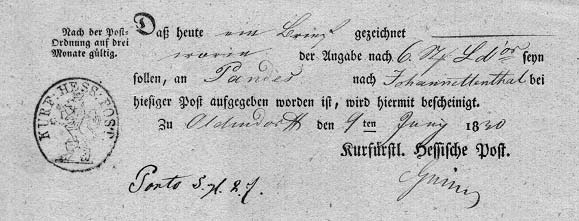 Nach der Post-
Ordnung auf drei
Monate gültig.
Daß heute ein Brief gezeichnet
worin der Angabe nach 6. L d'or seyn
sollen, an nach Johannettenthal bei
hiesiger Post aufgegeben worden ist, wird hiermit bescheinigt.
Zu Oldendorff den 9ten Juny 1830
Kurfürstl. Hessische Post.
KURF. HESS. POST
Porto